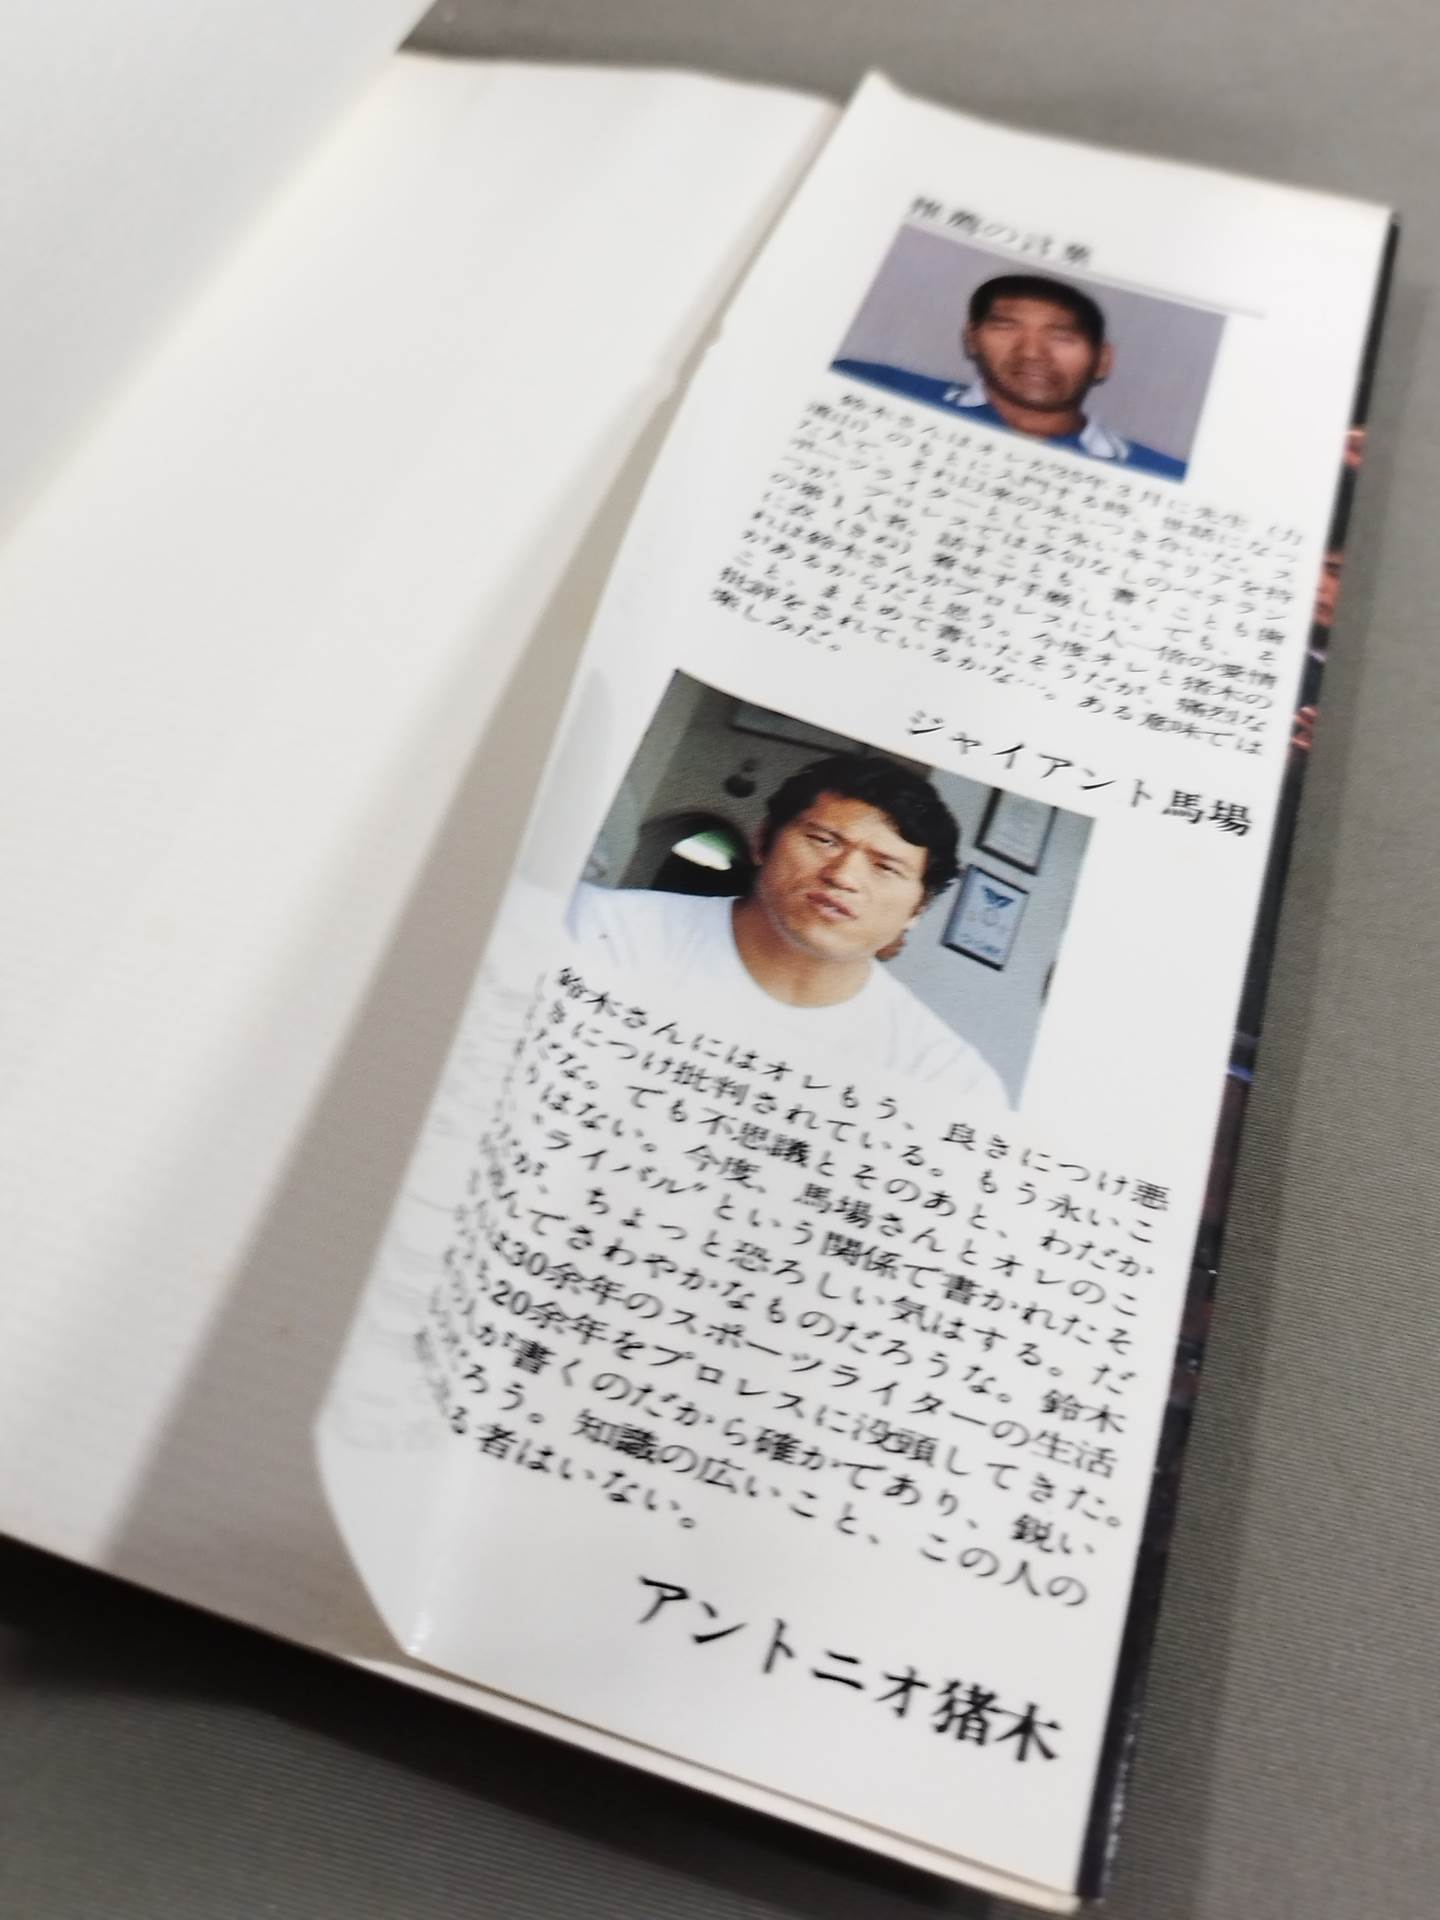 推薦の言葉
鈴木さんはオレが35年3月に先生（力
道山）のもとに入門する時、世話になっ
た人で、それ以来の永いつき合いだ。ス
ポーツライターとして永いキャリアを持
つが、プロレスでは文句なしのベテラン
の第1人者。話すことも、書くことも歯
に衣（きぬ）着せず手厳しい。でも、そ
れは鈴木さんがプロレスに人一倍の愛情
があるからだと思う。今度オレと猪木の
こと、まとめて書いたそうだが、痛烈な
批評をされているかな…。ある意味では
楽しみだ。
ジャイアント馬場
鈴木さんにはオレもう、良きにつけ悪
しきにつけ批判されている。もう永いこ
とだな。でも不思議とそのあと、わだか
りはない。今度、馬場さんとオレのこ
“ライバル”という関係で書かれたそ
うだが、ちょっと恐ろしい気はする。だ
れてさわやかなものだろうな。鈴木
は30余年のスポーツライターの生活
も20余年をプロレスに没頭してきた。
の人が書くのだから確かであり、鋭い
だろう。知識の広いこと、この人の
る者はいない。
アントニオ猪木